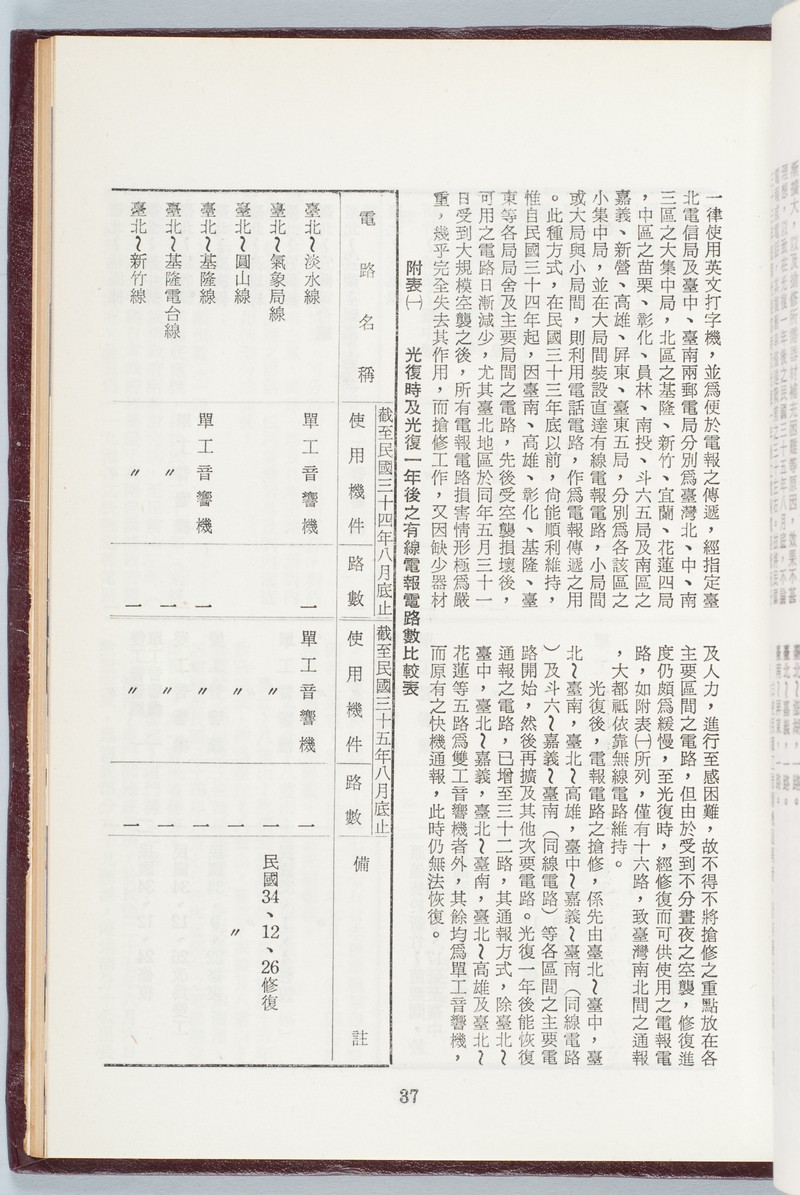 一律使用英文打字機，並爲便於電報之傳遞，經指定臺
北電信局及臺中、臺南兩郵電局分別爲臺灣北、中、南
三區之大集中局，北區之基隆、新竹、宜蘭、花蓮四局
，中區之苗栗、彰化、員林、南投、斗六五局及南區之
嘉義、新營、高雄、屛東、臺東五局，分別爲各該區之
小集中局，並在大局間裝設直達有線電報電路，小局間
或大局與小局間，則利用電話電路，作爲電報傳遞之用
。此種方式，在民國三十三年底以前，尙能順利維持，
惟自民國三十四年起，因臺南、高雄、彰化、基隆、臺
東等各局局舍及主要局間之電路，先後受空襲損壞後，
可用之電路日漸減少，尤其臺北地區於同年五月三十一
日受到大規模空襲之後，所有電報電路損害情形極爲嚴
重，幾乎完全失去其作用，而搶修工作，又因缺少器材
及人力，進行至感困難，故不得不將搶修之重點放在各
主要區間之電路，但由於受到不分晝夜之空襲，修復進
度仍頗爲緩慢，至光復時，經修復而可供使用之電報電
路，如附表㈠所列，僅有十六路，致臺灣南北間之通報
，大都祗依靠無線電路維持。
光復後，電報電路之搶修，係先由臺北～臺中，臺
北～臺南，臺北～高雄，臺中～嘉義～臺南（同線電路
）及斗六～嘉義～臺南（同線電路）等各區間之主要電
路開始，然後再擴及其他次要電路。光復一年後能恢復
通報之電路，已增至三十二路，其通報方式，除臺北～
臺中，臺北～嘉義，臺北～臺南，臺北～高雄及臺北～
花蓮等五路爲雙工音響機者外，其餘均爲單工音響機，
而原有之快機通報，此時仍無法恢復。
附表㈠　光復時及光復一年後之有線電報電路數比較表
電路名稱
截至民國三十四年八月底止
使用機件　路數
截至民國三十五年八月底止
使用機件　路數
備註
臺北～淡水線　單工音響機　一　單工音響機　一
臺北～氣象局線　〃　一　民國34、12、26修復
臺北～圓山線　〃　一　〃
臺北～基隆線　單工音響機　一　〃　一
臺北～基隆電台線　〃　一　〃　一
臺北～新竹線　〃　一　〃　一
37